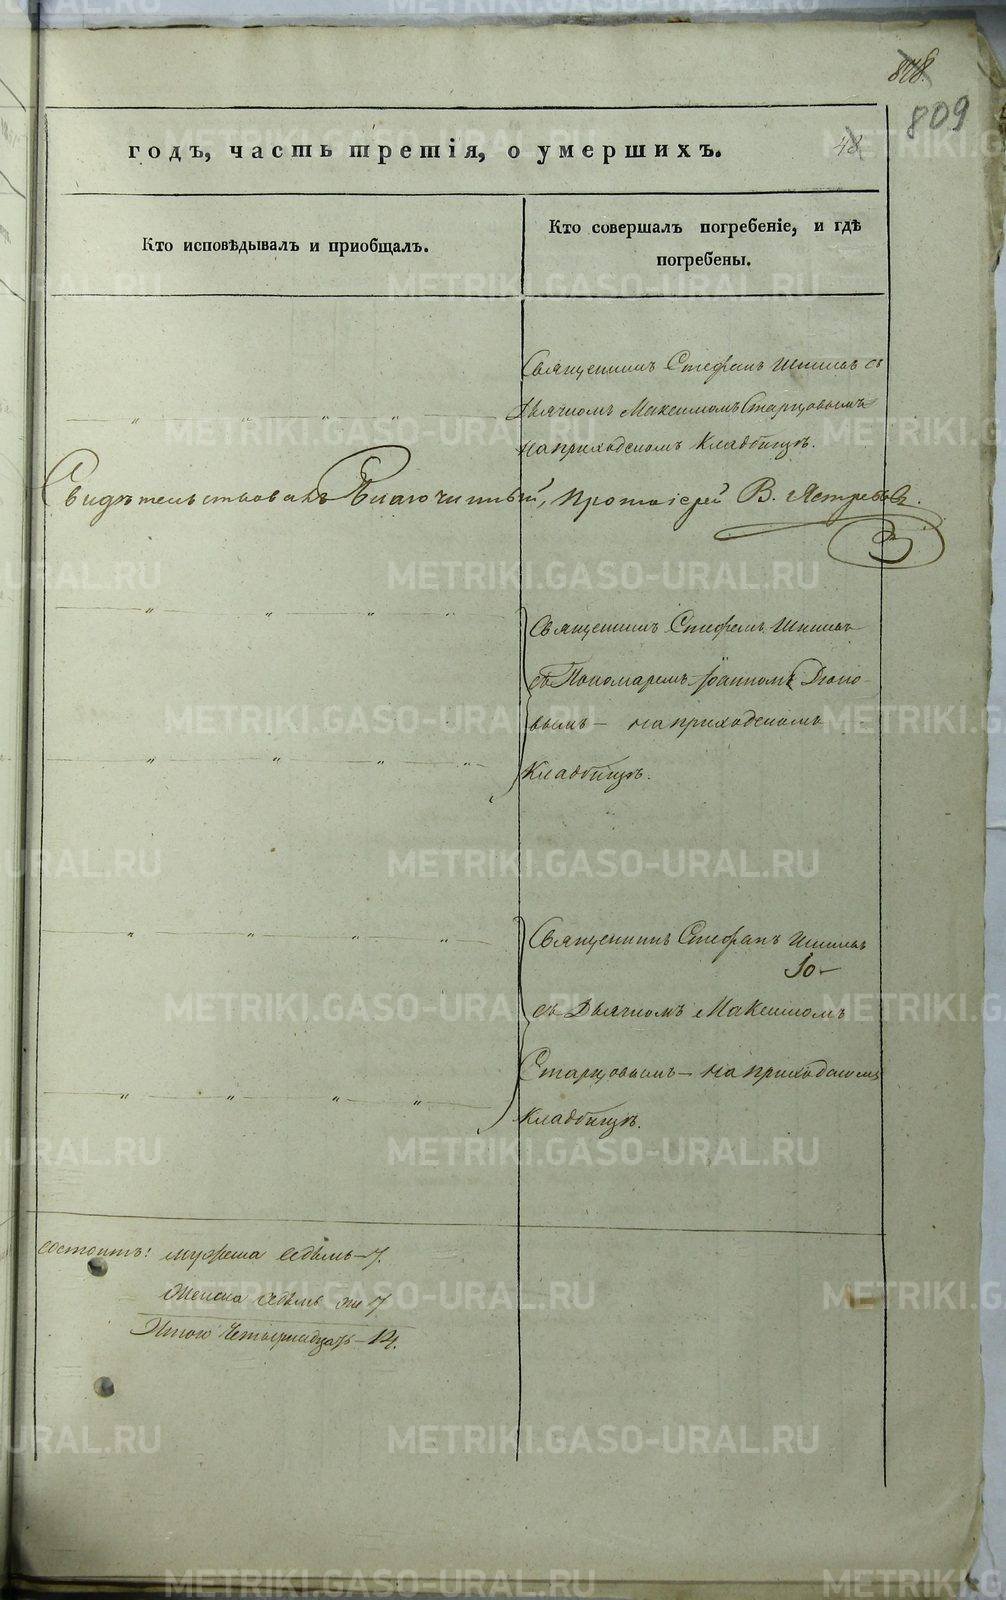 848.
809
48
годъ, часть третія, о умершихъ.
Кто исповѣдывалъ и приобщалъ.
Кто совершалъ погребеніе, и гдѣ
погребены.
Священникъ Стефанъ съ
Дьячкомъ Максимомъ Старцовымъ
на приходскомъ кладбищѣ.
Свидѣтельствовалъ Благочинный, Протоіерей В. Ястребовъ.
Священникъ Стефанъ
съ Пономаремъ Іоанномъ
вымъ – на приходскомъ
кладбищѣ.
Священникъ Стефанъ
съ Дьячкомъ Максимомъ
Старцовымъ – на приходскомъ
кладбищѣ.
состоитъ: мужеска седьмь – 7.
Женска седьмь же 7
Итого Четырнадцать – 14.
METRIKI.GASO-URAL.RU